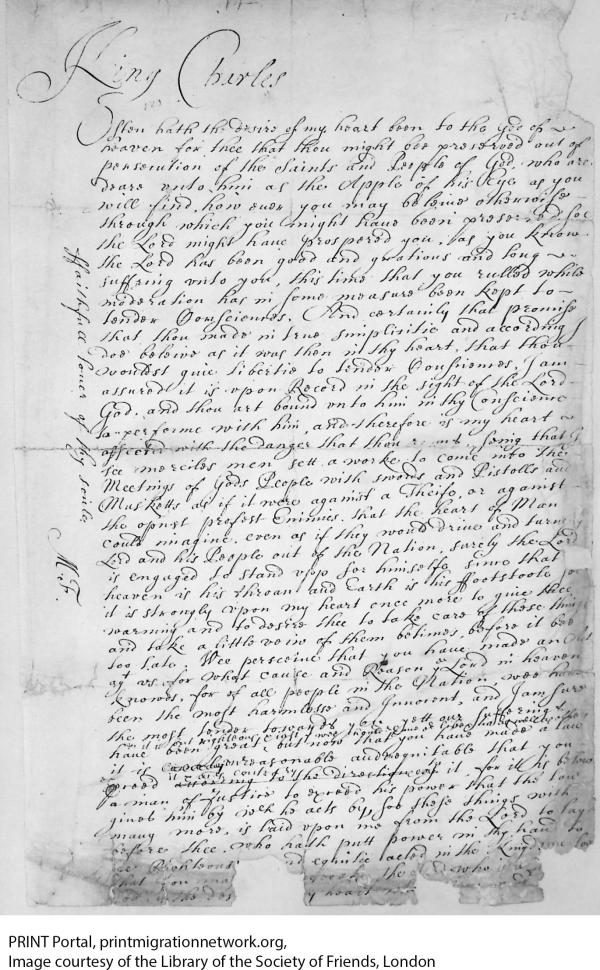 King Charles
Often hath the desire of my heart been to the God of
heaven for thee that thou might bee preserved out of
persecution of the Saints and People of God, who are
deare unto him as the Apple of his Eye as you
will find, how ever you may beleive otherwise
through which you might have been preserved soe
the Lord might have prospered you, as you know
the Lord has been good and gratious and long
suffring unto you, this time that you rulled while
moderation has in some measure been kept to
tender Consciences. And certainly that promise
that thou made in true simplicitie and according I
doe beleive as it was then in thy heart, that thou
wouldest give libertie to tender Consciences, I am
assured it is upon Record in the sight of the Lord
God. and thou art bound unto him in thy Conscience
to performe with him, and therefore is my heart
affected with the danger that thou seing that
see merciles men sett a worke to come into the
Meetings of Gods People with swords and Pistolls and
Musketts as if it were against a Theife, or against
the opnest profest Enimies. that the heart of Man
could imagine, even as if they would drive and turne
Lord and his People out of the Nation, surely the Lord
is engaged to stand upp for himselfe since that
heaven is his throan and Earth is his ffootstoole soe
it is strongly upon my heart once more to give thee
warning and to desire thee to take care of these things
and take a little veiw of them betimes before it bee
too late. Wee perceive that you have made an Act
agt us. for what cause and Reason ye Lord in heaven
knowes, for of all people in the Nation, wee have
been the most harmlesse and Innocent, and I am sure
the most tender towards you yett our sufferings
have been great but now that you have made a law
it is unreasonable and unequitable that you
exceed contrary to the direction of it. for it is below
a man of Justice to exceed his power that the law
gives him by wch he acts by, soe these things with
many more, is laid upon me from the Lord to lay
before thee. who hath putt power in thy hand to
see Righteous and equitie acted in the Kingdome
that you may who
in the heart
ffaithfull lover of thy soule
M: F
PRINT Portal, printmigrationnetwork.org,
Image courtesy of the Library of the Society of Friends, London